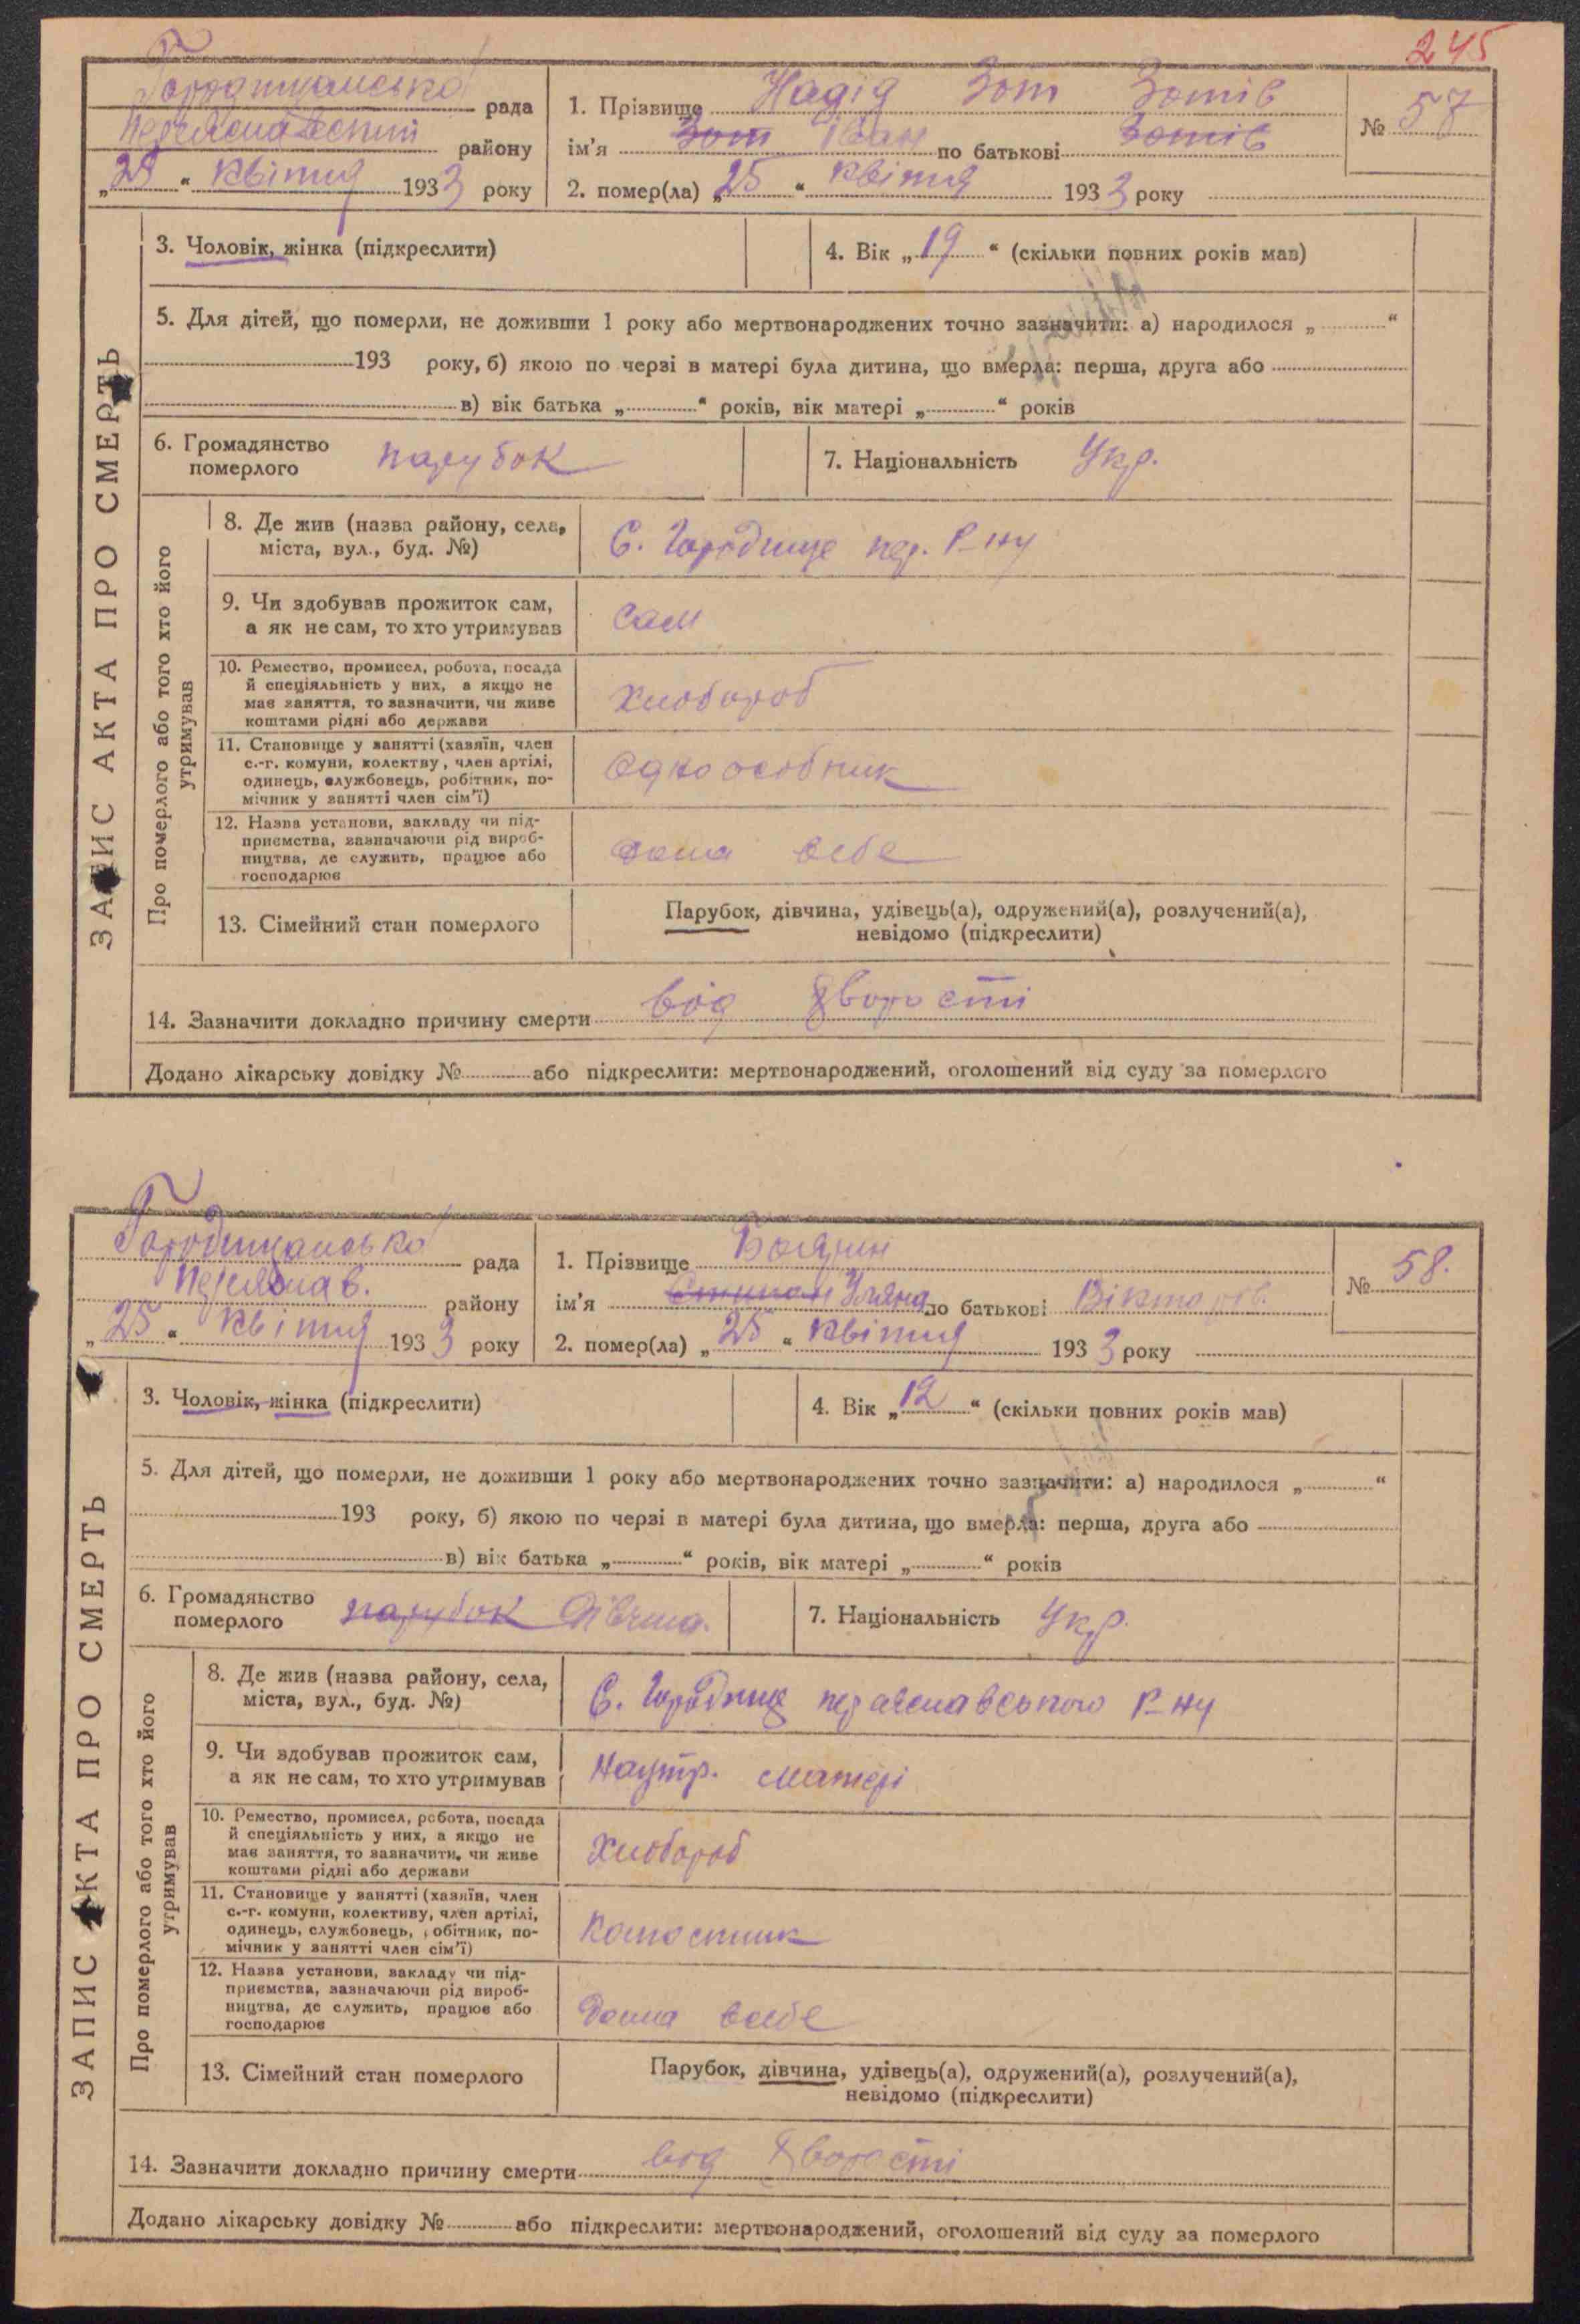 245
Городищанська рада
Переяславський району
„25“ квітня 1933 року
1. Прізвище Надід Зот Зотів
ім’я Зот Іван по батькові Зотів
№ 57
2. помер(ла) „25“ квітня 1933 року
ЗАПИС АКТА ПРО СМЕРТЬ
3. Чоловік, жінка (підкреслити)
4. Вік „19“ (скільки повних років мав)
5. Для дітей, що померли, не доживши 1 року або мертвонароджених точно зазначити: а) народилося „ “
193 року, б) якою по черзі в матері була дитина, що вмерла: перша, друга або
в) вік батька „ “ років, вік матері „ “ років
6. Громадянство
померлого парубок
7. Національність Укр.
Про померлого або того хто його
утримував
8. Де жив (назва району, села,
міста, вул., буд. №)
С. Городище пер. Р-ну
9. Чи здобував прожиток сам,
а як не сам, то хто утримував
сам
10. Ремество, промисел, робота, посада
й спеціяльність у них, а якщо не
має заняття, то зазначити, чи живе
коштами рідні або держави
Хлібороб
11. Становище у занятті (хазяїн, член
с.-г. комуни, колектву, член артілі,
одинець, службовець, робітник, по-
мічник у занятті член сім’ї)
Одноосібник
12. Назва установи, закладу чи під-
приємства, зазначаючи рід вироб-
ництва, де служить, працює або
господарює
дома себе
13. Сімейний стан померлого
Парубок, дівчина, удівець(а), одружений(а), розлучений(а),
невідомо (підкреслити)
14. Зазначити докладно причину смерти від хворости
Додано лікарську довідку № або підкреслити: мертвонароджений, оголошений від суду за померлого
Городищанська рада
Переяслав. району
„25“ квітня 1933 року
1. Прізвище Боярин
ім’я Уляна по батькові Вікторів.
№ 58.
2. помер(ла) „25“ квітня 1933 року
ЗАПИС АКТА ПРО СМЕРТЬ
3. Чоловік, жінка (підкреслити)
4. Вік „12“ (скільки повних років мав)
5. Для дітей, що померли, не доживши 1 року або мертвонароджених точно зазначити: а) народилося „ “
193 року, б) якою по черзі в матері була дитина, що вмерла: перша, друга або
в) вік батька „ “ років, вік матері „ “ років
6. Громадянство
померлого парубок дівчина.
7. Національність Укр.
Про померлого або того хто його
утримував
8. Де жив (назва району, села,
міста, вул., буд. №)
С. Городище переяславського Р-ну
9. Чи здобував прожиток сам,
а як не сам, то хто утримував
Наутр. матері
10. Ремество, промисел, робота, посада
й спеціяльність у них, а якщо не
має заняття, то зазначити, чи живе
коштами рідні або держави
Хлібороб
11. Становище у занятті (хазяїн, член
с.-г. комуни, колективу, член артілі,
одинець, службовець, робітник, по-
мічник у занятті член сім’ї)
12. Назва установи, закладу чи під-
приємства, зазначаючи рід вироб-
ництва, де служить, працює або
господарює
Дома всебе
13. Сімейний стан померлого
Парубок, дівчина, удівець(а), одружений(а), розлучений(а),
невідомо (підкреслити)
14. Зазначити докладно причину смерти від хворості
Додано лікарську довідку № або підкреслити: мертвонароджений, оголошений від суду за померлого